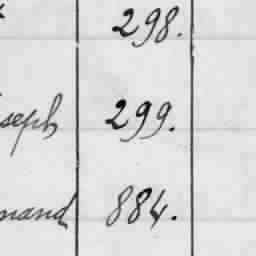 298.
seph 299.
nand 884.